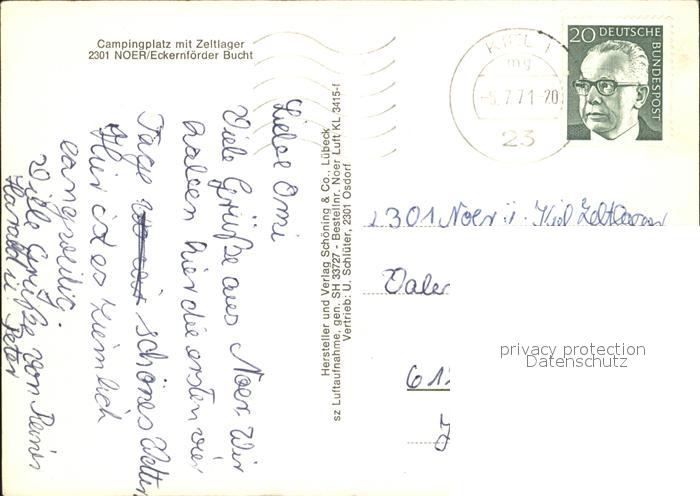 Campingplatz mit Zeltlager
2301 NOER/Eckernförder Bucht
Liebe Omi
Viele Grüße aus Noer. Wir
haben hier die ersten vier
Tage schönes Wetter
Hier ist es ziemlich
langweilig.
Viele Grüße von
Harald u. Peter
Hersteller und Verlag Schöning & Co., Lübeck
sz Luftaufnahme, gen. SH 33727 - Bestellnr. Noer Luft KL 3415-f
Vertrieb: U. Schlüter, 2301 Osdorf
KIEL 1
mg
-5.7.71-20
23
20 DEUTSCHE
BUNDESPOST
2301 Noer ü. Kiel Zeltlager
privacy protection
Datenschutz